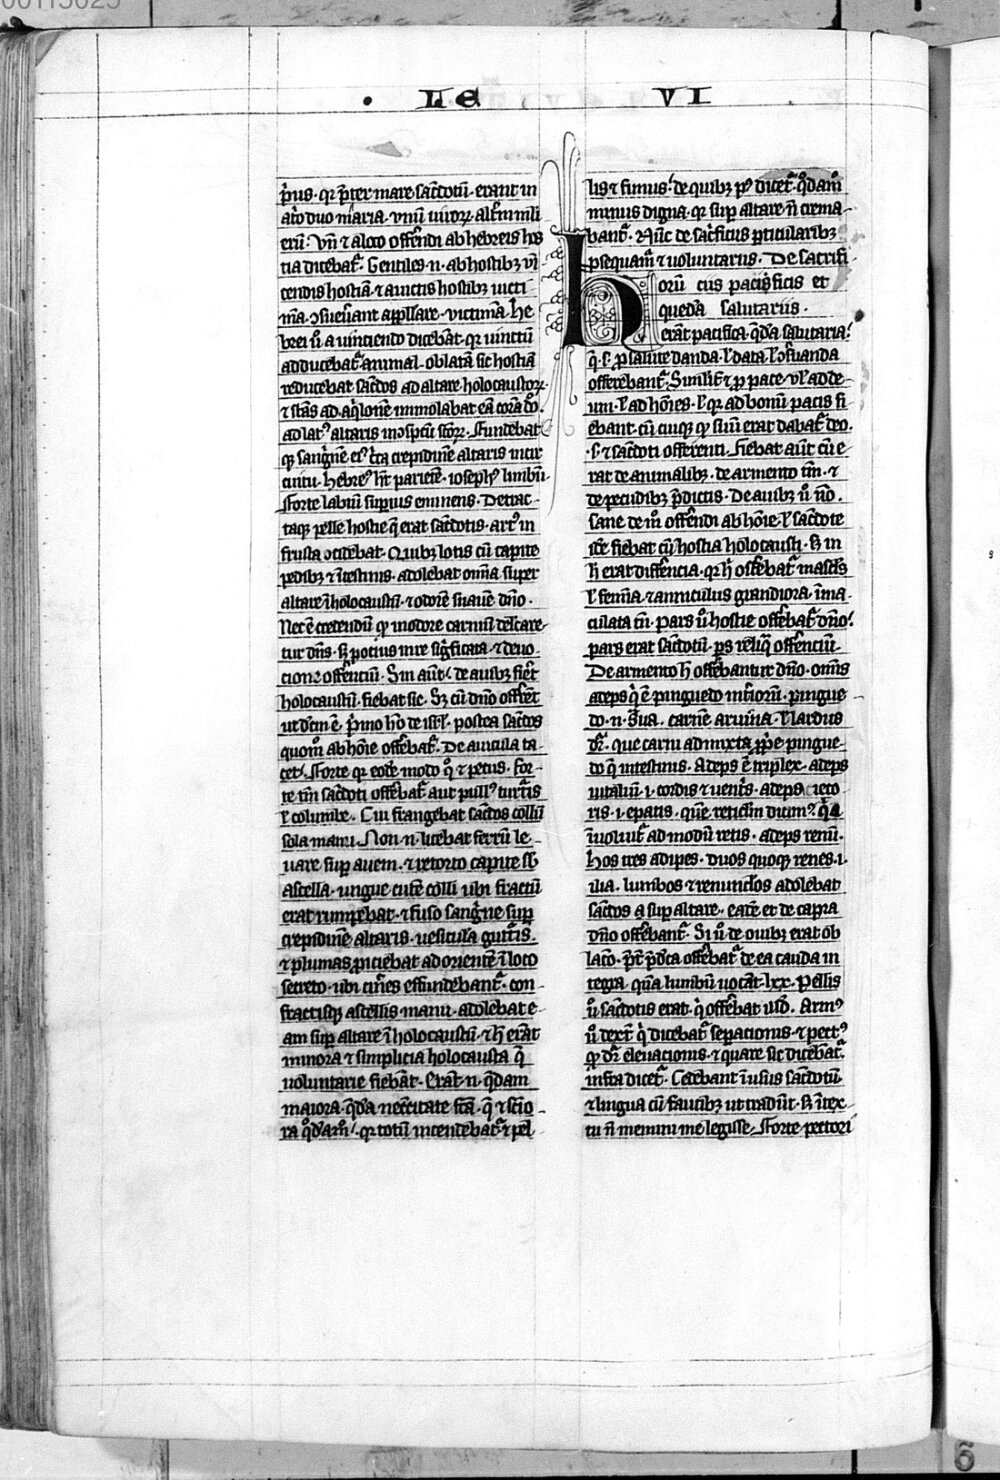 LE VI
p̄ius. qr p̄ter mare sac̄dotū. erant in
at̓o duo maria. vnū vitroꝝ. alt̄m mili
erū. Vn̄ ⁊ a loco offēndi ab hebreis hos
tia dicebat᷑. Gentiles .n. ab hostibꝫ vī
cendis hostiā. ⁊ a uictis hostibꝫ uicti
mā ꝯsueūant app̄llare. victimā. he
brei ū̓. a vinciendo dicebāt. qr uinctū
adducebat᷑ animal. oblatā sic hostiā
reducebat sac̄dos ad altare holocaustoꝝ.
⁊ stās ad aq̓lonē immolabat eā corā dō.
ad lat᷒ altaris in ꝯspc̄tu sc̄oꝝ. Fundebat
qꝫ sangnē ei᷒ c̓ca crepidinē altaris incir
cuitu. hebre᷒ hꝫ parietē. ioseph᷒ limbū.
Forte labiū suꝑius eminens. Detrac
taqꝫ pelle hostie q̄ erat sac̄dotis. art᷒ in
frusta ꝯcidebat. Quibꝫ lotis cū capite
pedibꝫ ⁊ ītestinis. adolebat om̄ia super
altare ī holocaustū. ⁊ odorē suauē dn̄o.
Nec ē credendū ꝙ in odore carnis delc̄are
tur dn̄s. sꝫ potius in re sig̓ficata. ⁊ deuo
cione offerentiū. Sin aūt de auibꝫ fier̄t
holocaustū. fiebat sic. Sꝫ cū dn̄o offert̄
ut dc̄m ē. p̓mo hō de isrl̄. postea sac̄dos
quom̄ ab hoīe offēbat᷑. De auicula ta
cet. Forte qr eodē modo q̊ ⁊ pecus. for
te tn̄ sac̄doti offēbat᷑ aut pull᷒ turt̓is
ł columbe. Cui frangebat sac̄dos collū
sola manu. Non .n. licebat ferrū le
uare suꝑ auem. ⁊ retorto capite sb̄
ascella. ungue cutē colli ubi fractū
erat rumpebat. ⁊ fuso sangne suꝑ
crepidinē altaris. uesicula gutt̓is.
⁊ plumas ꝓiciebat ad orientē ī loco
secreto. ubi cīnes effundebant᷑. con
fractisqꝫ ascellis manu. adolebat e
am suꝑ altare ī holocaustū. ⁊ h̄ erāt
minora ⁊ simplicia holocausta q̄
voluntarie fiebāt. Erāt .n. q̄dam
maiora. q̄dā nec̄citate fc̄a. q̄ ⁊ sc̄io
ra q̊dam̄. qr totū incendebat᷑ ⁊ pel
lis ⁊ fimus. de quibꝫ p᷒ dicet᷑. q̊dam̄
minus digna. qr suꝑ altare n̄ crema
bant᷑. Nūc de sac̓ficiis ꝑticularibꝫ
ꝓsequam᷑ ⁊ uoluntariis. De sacrifi
orū ciis pacificis et
que dā salutariis.
herāt pacifica. q̄dā salutaria.
q̄ .s. ꝓ salute danda. ł data. ł ꝯseruanda
offerebant᷑. Similit̄ ⁊ ꝓ pace. vł ad de
um. ł ad hoīes. ł qr ad bonū pacis fi
ebant. cū cuiqꝫ qꝫ suū erat dabat᷑ deo.
.s. ⁊ sac̄doti offerenti. Fiebat aūt cū e
rat de animalibꝫ. de armento tm̄. ⁊
de pecudibꝫ p̄dictis. De auibꝫ ū̓ nō.
Sane de m̊ offēndi ab hoīe. ł sac̄dote
ste fiebat cū hostia holocausti. sꝫ in
h̊ erat differencia. qr h̄ offēbat᷑ masc̄ls
ł femīa. ⁊ anniculus grandiora. īma
culata tn̄. pars ū̓ hostie offēbat᷑ dn̄o.
pars erat sac̄dotū. ps reliq̄ offerentiū.
De armento h̄ offēbantur dn̄o. omīs
adeps q̓ ē pinguedo int̓iorū. pingue
do .n. s̄ua. carnē aruina. ł lardus
dr̄. que carni admixta ꝓp̓e pingue
do q̄ intestinis. Adeps ē triplex. adeps
uitaliū .i. cordis ⁊ uent̓s. adeps ieco
ris .i. epatis. quē reticl̄m dicim᷒. q̓a
īuoluit᷑ ad modū retis. adeps renū.
hos tres adipes. duos quoqꝫ renes .i.
ilia. lumbos ⁊ renunclos adolebat
sac̄dos a suꝑ altare. eadē et de capra
dn̄o offēbant᷑. Si ū̓ de ouibꝫ erat ob
lac̄o. p̄t p̄dc̄a offēbat᷑ de ea cauda in
tegra. quā lumbū uocāt lxx. Pellis
ū̓ sac̄dotis erat. q̓ offēbat usd̄. Arm᷒
ū̓ dext̄ q̓ dicebat᷑ sepacionis. ⁊ pect᷒
qꝫ dr̄ eleuacionis. ⁊ quare sic dicebāt᷑.
infra dicet᷑. Cedebant ī usus sac̄dotū.
⁊ lingua cū faucibꝫ ut tradūt. sꝫ ī tex
tu n̄ memini me legisse. Forte pectori